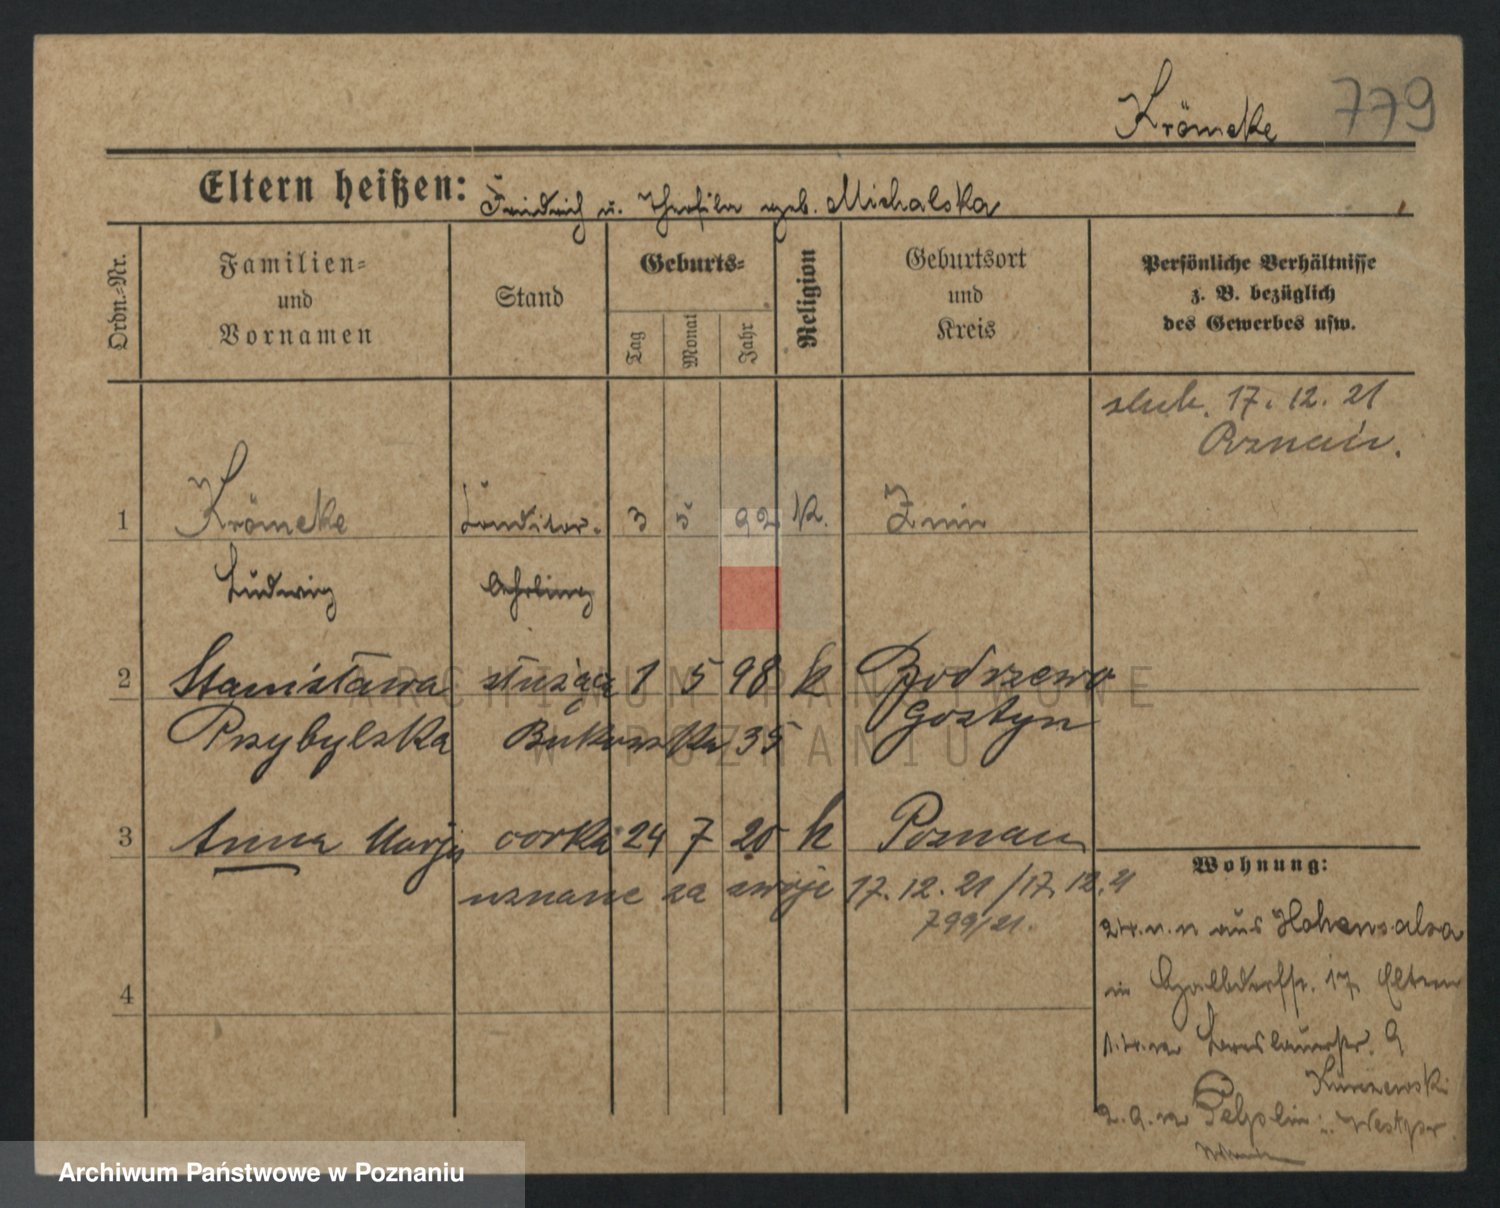 Krömcke 779
Eltern heißen: Friedrich u. Theofila geb. Michalska
Ordn.-Nr.
Familien-
und
Vornamen
Stand
Geburts-
Tag
Monat
Jahr
Religion
Geburtsort
und
Kreis
Persönliche Verhältnisse
z. B. bezüglich
des Gewerbes usw.
slub. 17. 12. 21
Poznań.
1 Krömcke Konditor- 3 5 92 k. Znin
Ludwig lehrling
2 Stanisława służąca 1 5 98 k Bodrzewo
Przybylska Bukowska 35 Gostyn
3 Anna Marja córka 24 7 20 k Poznań
uznane za swoje 17. 12. 21 / 17. 12. 21
799/21.
Wohnung:
aus Hohensalza
in 17 Eltern
Breslauerstr. 9
Kurzewski
Pelplin Westpr.
4
ARCHIWUM PAŃSTWOWE
W POZNANIU
Archiwum Państwowe w Poznaniu